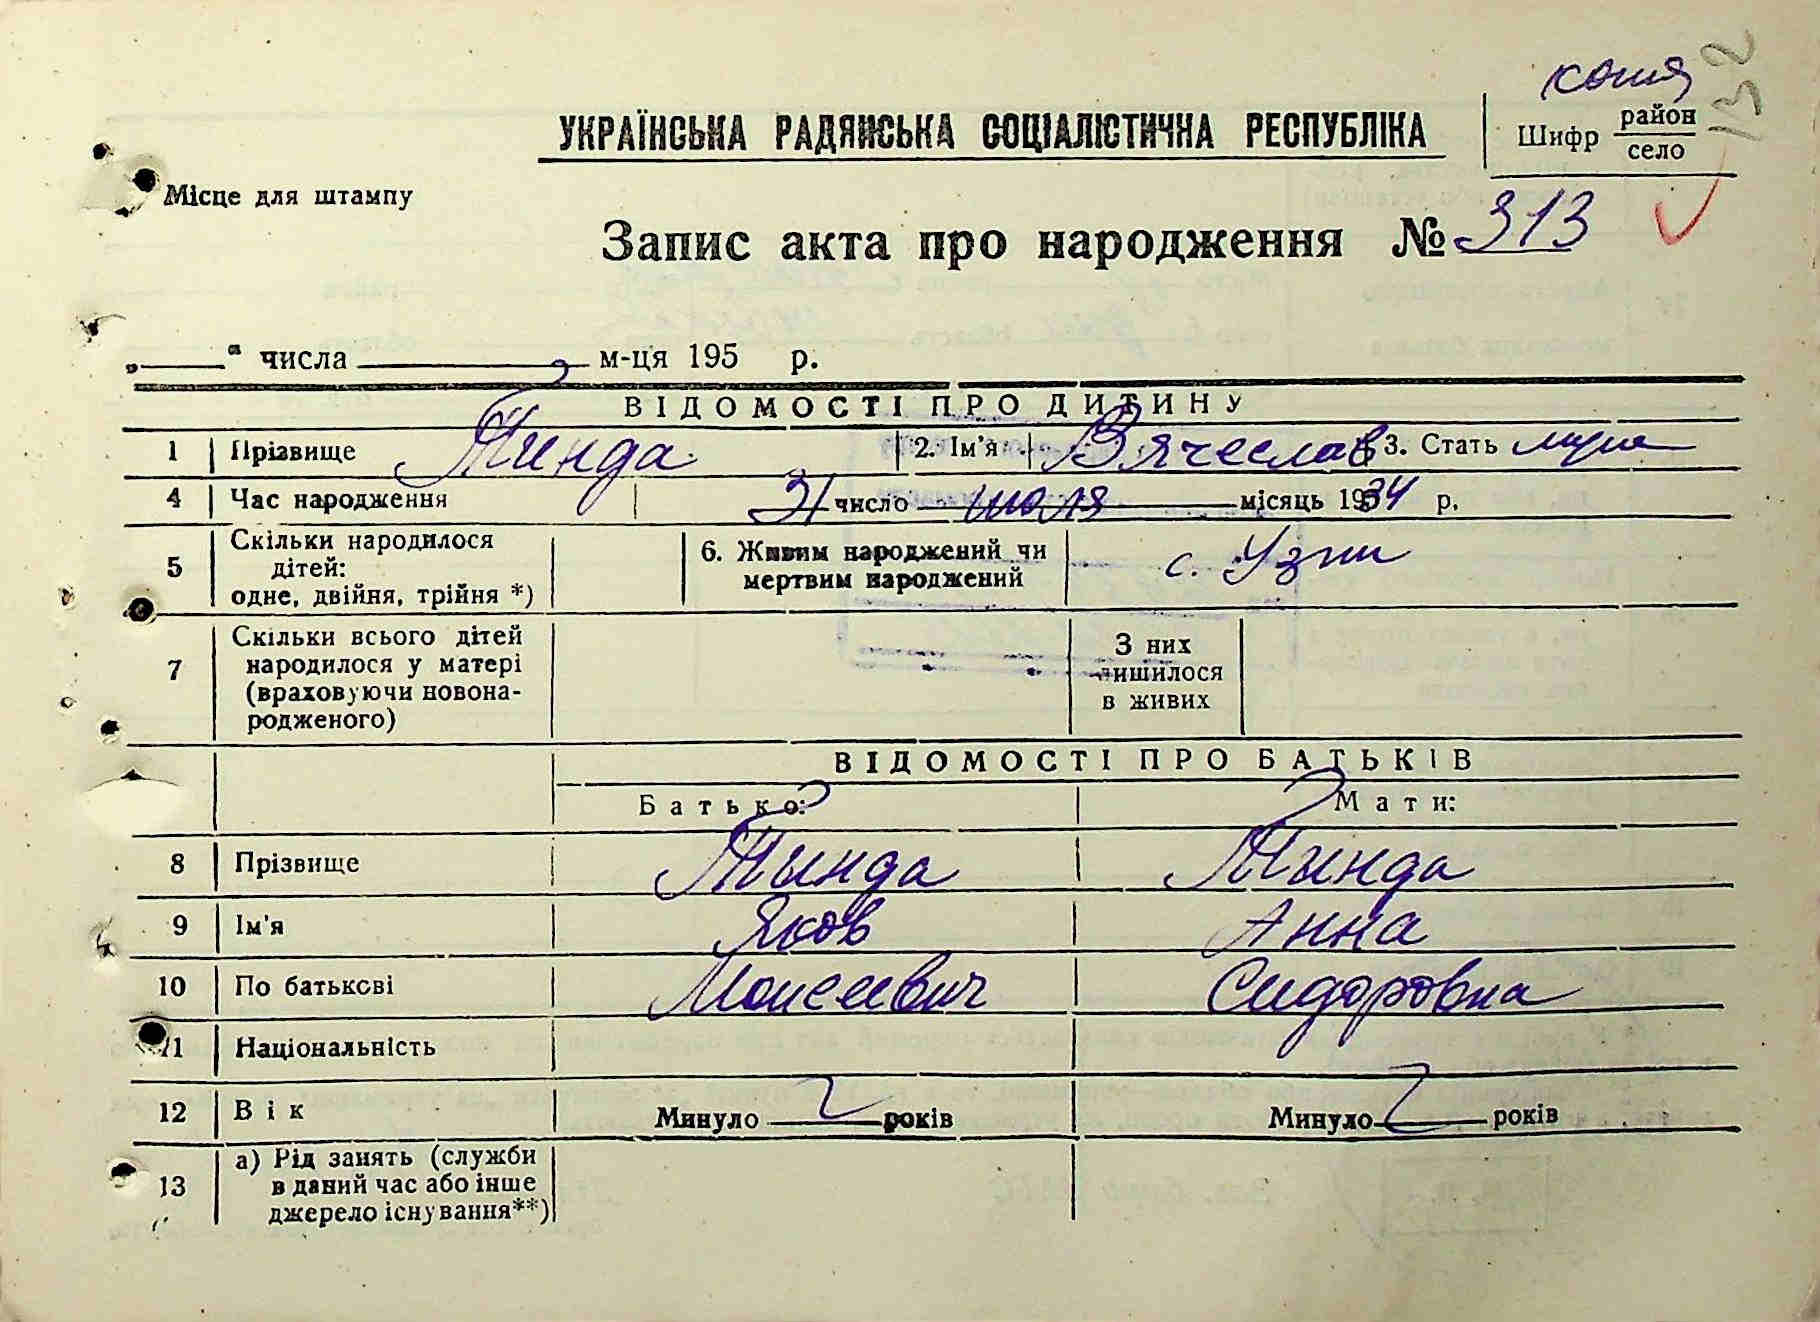 копия
132
УКРАЇНСЬКА РАДЯНСЬКА СОЦІАЛІСТИЧНА РЕСПУБЛІКА
Шифр район село
Місце для штампу
Запис акта про народження № 313
„ “ числа м-ця 195 р.
ВІДОМОСТІ ПРО ДИТИНУ
1 Прізвище Тинда 2. Ім'я Вячеслав 3. Стать муж
4 Час народження 31 число июля місяць 1934 р.
5 Скільки народилося дітей: одне, двійня, трійня *) 6. Живим народжений чи мертвим народжений с. Узин
7 Скільки всього дітей народилося у матері (враховуючи новонародженого) З них лишилося в живих
ВІДОМОСТІ ПРО БАТЬКІВ
Батько: Мати:
8 Прізвище Тинда Тинда
9 Ім'я Яков Анна
10 По батькові Моисеевич Сидоровна
11 Національність
12 Вік Минуло років Минуло років
13 а) Рід занять (служби в даний час або інше джерело існування**)